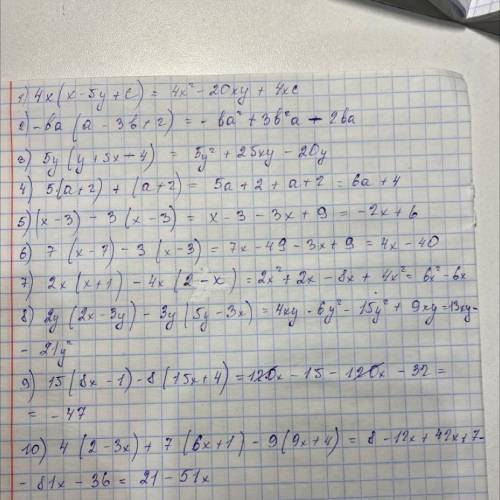 1) 4x(x-5y+c) = 4x²-20xy+4xc
2) -ba(a-3b+2) = -ba²+3b²a-2ba
3) 5y(y+5x-4) = 5y²+25xy-20y
4) 5(a+2)+(a+2) = 5a+2+a+2 = 6a+4
5) (x-3)-3(x-3) = x-3-3x+9 = -2x+6
6) 7(x-7)-3(x-3) = 7x-49-3x+9 = 4x-40
7) 2x(x+1)-4x(2-x) = 2x²+2x-8x+4x² = 6x²-6x
8) 2y(2x-3y)-3y(5y-3x) = 4xy-6y²-15y²+9xy = 13xy-
-21y²
9) 15(8x-1)-8(15x+4) = 120x-15-120x-32 =
= -47
10) 4(2-3x)+7(6x+1)-9(9x+4) = 8-12x+42x+7-
-81x-36 = 21-51x